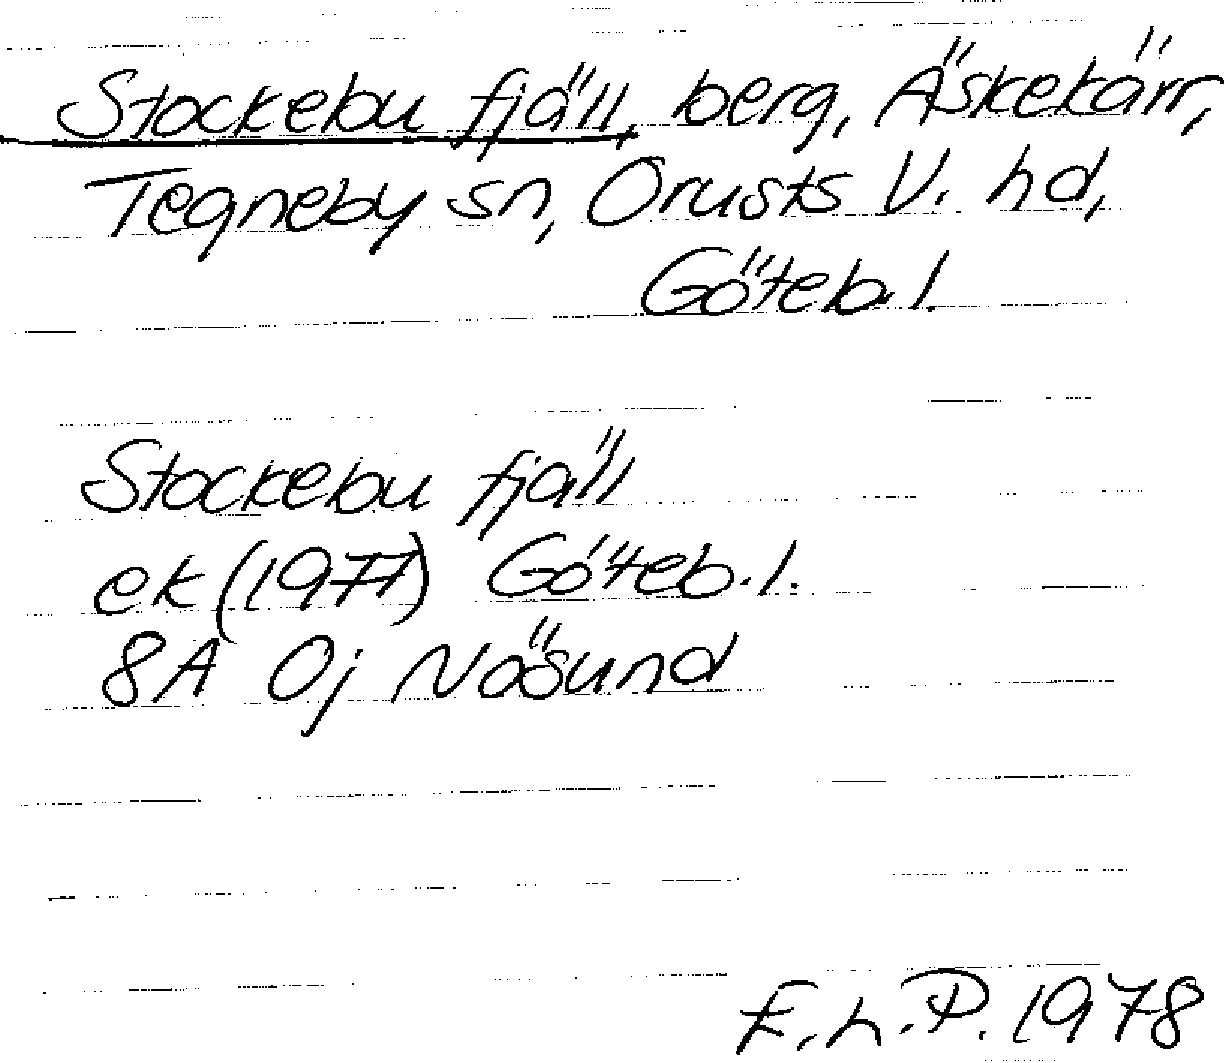 Stockebu fjäll, berg, Äskekärr,
Tegneby sn, Orusts V. hd,
Göteb.l.
Stockebu fjäll
ek (1977) Göteb.l.
8A 0j Nösund
E.L.P. 1978